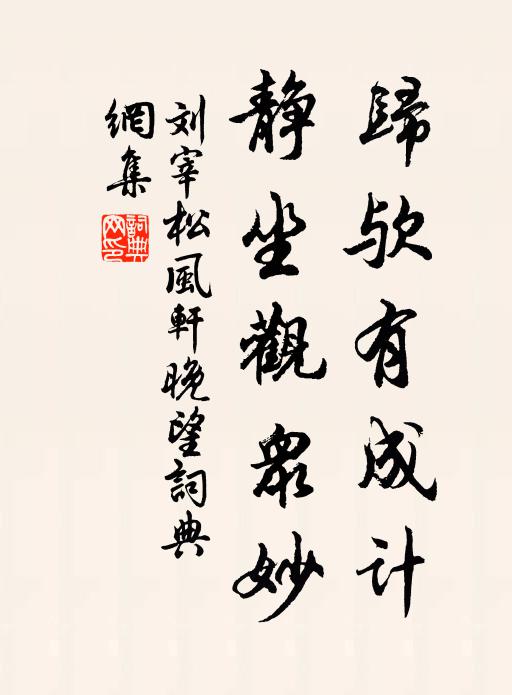 歸欤有成计
静坐觀衆妙
刘宰松風軒晚望詞典
網集
詞典
网印